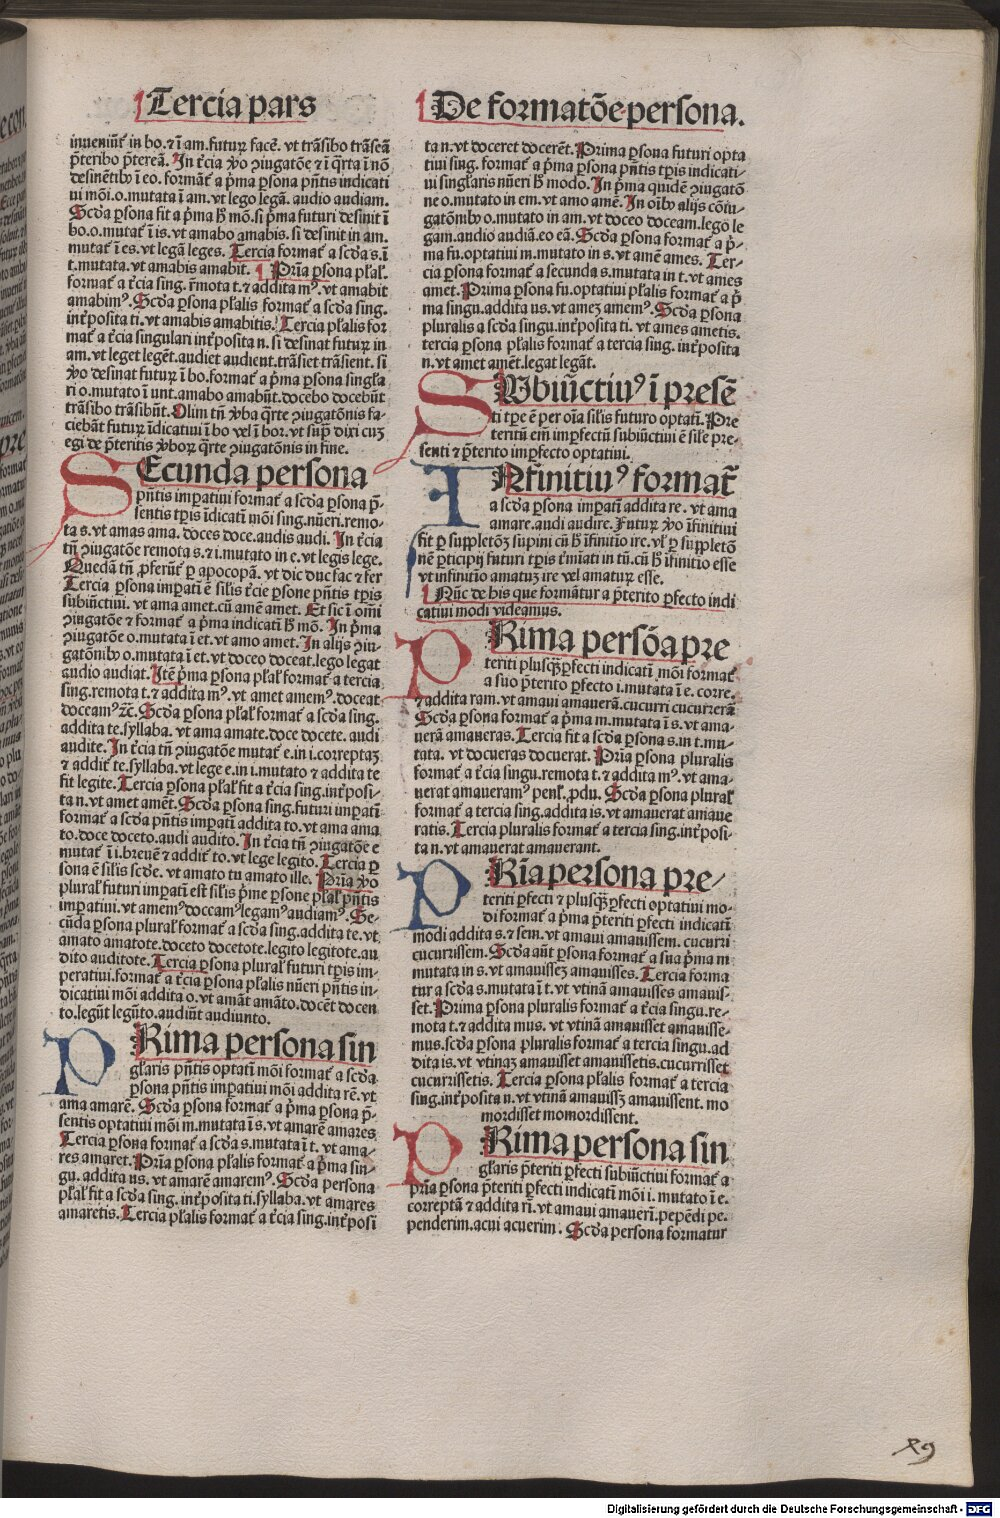 Tercia pars
De formatõe persona.
inueniũt̃ in bo. ⁊ ĩ am. futuꝝ facẽ. vt trãsibo trãseã
p̃teribo p̃tereã. In t̃cia ꝟo ꝯiugatõe ⁊ ĩ q̃rta ĩ nõ
desinẽtibꝰ ĩ eo. formãt̃ a p̃ma ꝑsona pñtis indicati
ui mõi. o. mutata ĩ am. vt lego legã. audio audiam.
Scḋa ꝑsona fit a p̃ma h̃ mõ. si p̃ma futuri desinit ĩ
bo. o. mutat̃ ĩ is. vt amabo amabis. si desinit in am.
mutat̃ ĩ es. vt legã leges. Tercia format̃ a scḋa s. ĩ
t. mutata. vt amabis amabit. ¶ Pria ꝑsona pl̃al.
format̃ a t̃cia sing. r̃mota t. ⁊ addita mꝰ. vt amabit
amabimꝰ. Scḋa ꝑsona pl̃alis format̃ a scḋa sing.
int̃posita ti. vt amabis amabitis. Tercia pl̃alis for
mat̃ a t̃cia singulari int̃posita n. si desinat futuꝝ in
am. vt leget legẽt. audiet audient. trãsiet trãsient. si
ꝟo desinat futuꝝ ĩ bo. format̃ a p̃ma ꝑsona singl̃a
ri o. mutato ĩ unt. amabo amabũt. docebo docebũt
trãsibo trãsibũt. Olim tñ ꝟba q̃rte ꝯiugatõnis fa-
ciebãt futuꝝ ĩdicatiui ĩ bo vel ĩ bor. vt sup̃ dixi cuꝫ
egi de p̃teritis ꝟboꝝ q̃rte ꝯiugatõnis in fine.
SEcunda persona
pñtis imꝑatiui format̃ a scḋa ꝑsona p̃-
sentis tꝑis ĩdicati mõi sing. nũeri. remo-
ta s. vt amas ama. doces doce. audis audi. In t̃cia
tñ ꝯiugatõe remota s. ⁊ i. mutato in e. vt legis lege.
Quedã tñ ꝓferũt̃ ꝑ apocopã. vt dic duc fac ⁊ fer
Tercia ꝑsona imꝑati ẽ silis t̃cie ꝑsone pñtis tꝑis
subiũctiui. vt ama amet. cũ amẽ amet. Et sic ĩ omĩ
ꝯiugatõe ⁊ format̃ a p̃ma indicati h̃ mõ. In p̃ma
ꝯiugatõe o. mutata ĩ et. vt amo amet. In alijs ꝯiu-
gatõnibꝰ o. mutata ĩ et. vt doceo doceat. lego legat
audio audiat. Itẽ p̃ma ꝑsona pl̃al format̃ a tercia
sing. remota t. ⁊ addita mꝰ. vt amet amemꝰ. doceat
doceamꝰ ⁊c̃. Scḋa ꝑsona pl̃al format̃ a scḋa sing.
addita te. syllaba. vt ama amate. doce docete. audi
audite. In t̃cia tñ ꝯiugatõe mutat̃ e. in i. correptaꝫ
⁊ addit̃ te. syllaba. vt lege e. in i. mutato ⁊ addita te
fit legite. Tercia ꝑsona pl̃al fit a t̃cia sing. int̃posi-
ta n. vt amet amẽt. Scḋa ꝑsona sing. futuri imꝑati
format̃ a scḋa pñtis imꝑati addita to. vt ama ama
to. doce doceto. audi audito. In t̃cia tñ ꝯiugatõe e
mutat̃ ĩ i. breuẽ ⁊ addit̃ to. vt lege legito. Tercia ꝑ
sona ẽ silis scḋe. vt amato tu amato ille. Pria ꝟo
plural futuri imꝑati est silis p̃me ꝑsone pl̃al pñtis
imꝑatiui. vt amemꝰ doceamꝰ legamꝰ audiamꝰ. Se-
cũda ꝑsona plural format̃ a scḋa sing. addita te. vt
amato amatote. doceto docetote. legito legitote. au
dito auditote. Tercia ꝑsona plural futuri tꝑis im-
peratiui. format̃ a t̃cia ꝑsona pl̃alis nũeri pñtis in-
dicatiui mõi addita o. vt amãt amãto. docẽt docen
to. legũt legũto. audiũt audiunto.
PRima persona sin
gl̃aris pñtis optati mõi format̃ a scḋa
ꝑsona pñtis imꝑatiui mõi addita rẽ. vt
ama amarẽ. Scḋa ꝑsona format̃ a p̃ma ꝑsona p̃-
sentis optatiui mõi m. mutata ĩ s. vt amarẽ amares
Tercia ꝑsona format̃ a scḋa s. mutata ĩ t. vt ama-
res amaret. Pria ꝑsona pl̃alis format̃ a p̃ma sin-
gu. addita us. vt amarẽ amaremꝰ. Scḋa persona
pl̃al fit a scḋa sing. int̃posita ti. syllaba. vt amares
amaretis. Tercia pl̃alis format̃ a t̃cia sing. int̃posi
ta n. vt doceret docerẽt. Prima ꝑsona futuri opta
tiui sing. format̃ a p̃ma ꝑsona pñtis tꝑis indicati-
ui singl̃aris nũeri h̃ modo. In p̃ma quidẽ ꝯiugatõ
ne o. mutato in em. vt amo amẽ. In oĩbꝰ alijs cõiu-
gatõnibꝰ o. mutato in am. vt doceo doceam. lego le
gam. audio audiã. eo eã. Scḋa ꝑsona format̃ a p̃-
ma fu. optatiui m. mutato in s. vt amẽ ames. Ter-
cia ꝑsona format̃ a secunda s. mutata in t. vt ames
amet. Prima ꝑsona fu. optatiui pl̃alis format̃ a p̃
ma singu. addita us. vt amez amemꝰ. Scḋa ꝑsona
pluralis a scḋa singu. int̃posita ti. vt ames ametis.
tercia ꝑsona pl̃alis format̃ a tercia sing. int̃posita
n. vt amet amẽt. legat legãt.
SVbiũctiuꝰ ĩ presẽ
ti tꝑe ẽ per oĩa silis futuro optati. Pre
teritũ em̃ imꝑfectũ subiũctiui ẽ sile pre-
senti ⁊ p̃terito imꝑfecto optatiui.
INfinitiuꝰ format̃
a scḋa ꝑsona imꝑati addita re. vt ama
amare. audi audire. Futuꝝ ꝟo ĩfinitiui
fit ꝑ suppletõꝫ supini cũ h̃ ĩfinitio ire. vl̃ ꝑ suppletõ
nẽ ꝑticipij futuri tꝑis t̃miati in tũ. cũ h̃ ĩfinitio esse
vt infinitio amatuꝫ ire vel amatuꝝ esse.
¶ Nũc de his que formãtur a p̃terito ꝑfecto indi
catiui modi videamus.
PRima persõa pre
teriti plusq̃ꝑfecti indicati mõi format̃
a suo p̃terito ꝑfecto i. mutata ĩ e. corre.
⁊ addita ram. vt amaui amauerã. cucurri cucurrerã
Scḋa ꝑsona format̃ a p̃ma m. mutata ĩ s. vt ama-
uerã amaueras. Tercia fit a scḋa ꝑsona s. in t. mu-
tata. vt docueras docuerat. Pria ꝑsona pluralis
format̃ a t̃cia singu. remota t. ⁊ addita mꝰ. vt ama-
uerat amaueramꝰ penl̃. ꝓdu. Scḋa ꝑsona plural
format̃ a tercia sing. addita is. vt amauerat amaue
ratis. Tercia pluralis format̃ a tercia sing. int̃posi-
ta n. vt amauerat amauerant.
PRia persona pre-
teriti ꝑfecti ⁊ plusq̃ꝑfecti optatiui mo-
di format̃ a p̃ma p̃teriti ꝑfecti indicati
modi addita s. ⁊ sem. vt amaui amauissem. cucurri
cucurrissem. Scḋa aũt ꝑsona format̃ a sua p̃ma m
mutata in s. vt amauisseꝫ amauisses. Tercia forma
tur a scḋa s. mutata ĩ t. vt vtinã amauisses amauis-
set. Prima ꝑsona pluralis format̃ a t̃cia singu. re-
mota t. ⁊ addita mus. vt vtinã amauisset amauisse-
mus. scḋa ꝑsona pluralis format̃ a tercia singu. ad
dita is. vt vtinaꝫ amauisset amauissetis. cucurrisset
cucurrissetis. Tercia ꝑsona pl̃alis format̃ a tercia
sing. int̃posita n. vt vtinã amauissꝫ amauissent. mo
mordisset momordissent.
PRima persona sin
gl̃aris p̃teriti ꝑfecti subiũctiui format̃ a
pria ꝑsona p̃teriti ꝑfecti indicati mõi i. mutato ĩ e.
correptã ⁊ addita rĩ. vt amaui amauerĩ. pepẽdi pe-
penderim. acui acuerim. Scḋa persona formatur
Digitalisierung gefördert durch die Deutsche Forschungsgemeinschaft - DFG